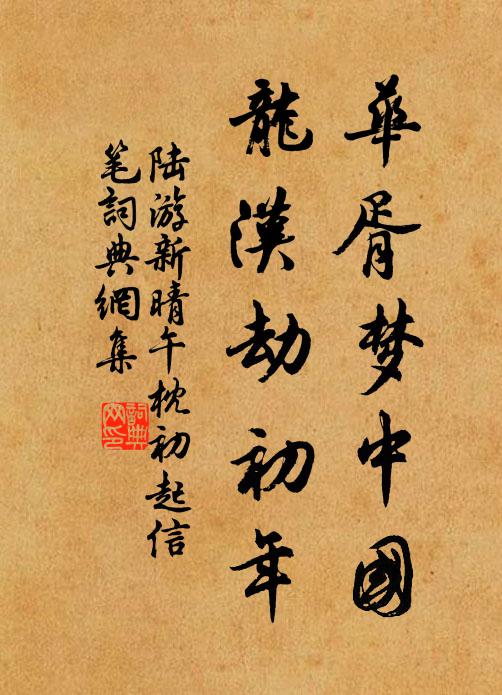 華胥梦中國
龍漢劫初年
陆游新晴午枕初起信
笔詞典網集
詞典
网印